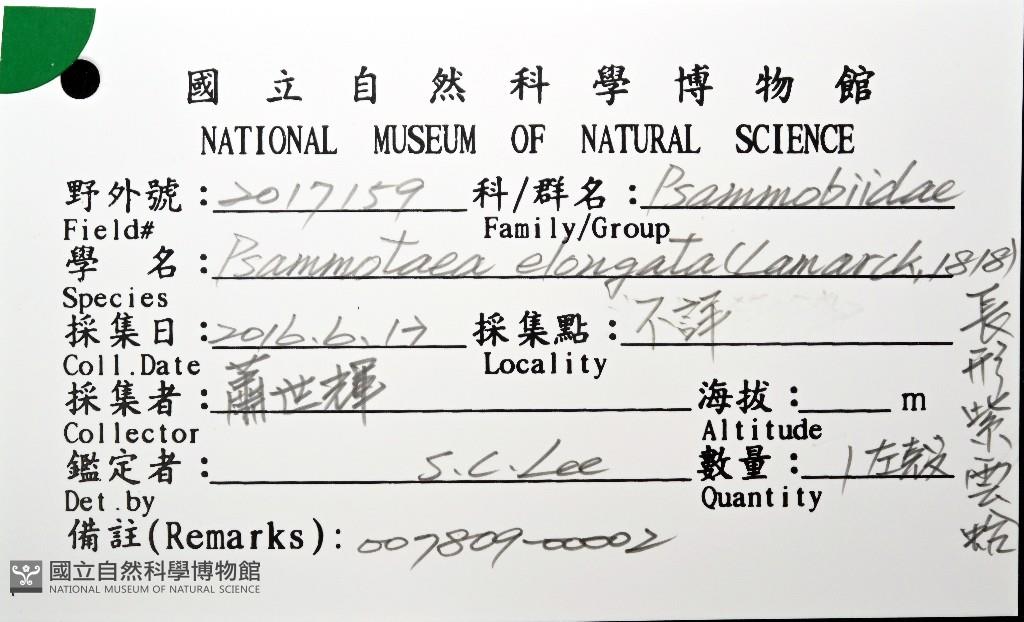 國立自然科學博物館
NATIONAL MUSEUM OF NATURAL SCIENCE
野外號：2017159 科/群名：Psammobiidae
Field# Family/Group
學 名：Psammotaea elongata (Lamarck, 1818)
Species
採集日：2016.6.17 採集點：不詳
Coll.Date Locality
採集者：蕭世輝 海拔：____ m
Collector Altitude
鑑定者：S.C.Lee 數量：1左殼
Det.by Quantity
備註(Remarks)：007809-00002
長形紫雲蛤
國立自然科學博物館
NATIONAL MUSEUM OF NATURAL SCIENCE